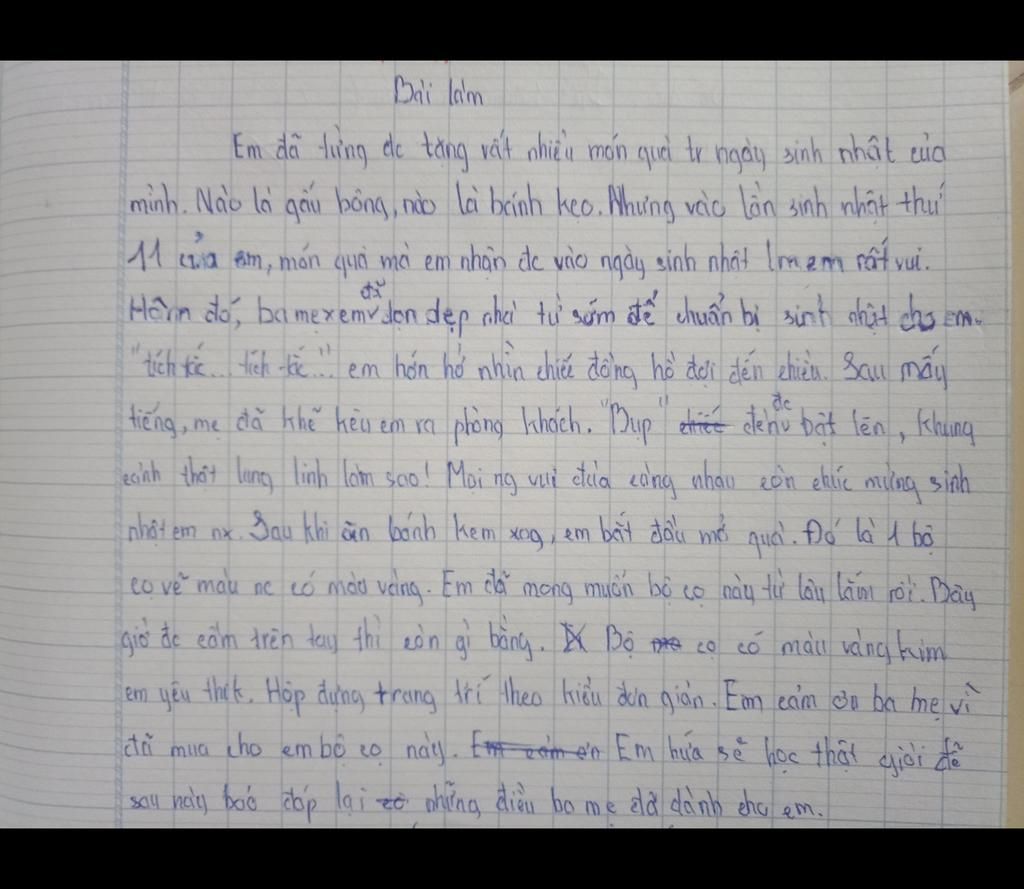 Bài làm
Em đã từng đc tặng rất nhiều món quà tr ngày sinh nhật của
mình. Nào là gấu bông, nào là bánh kẹo. Nhưng vào lần sinh nhật thứ
11 của em, món quà mà em nhận đc vào ngày sinh nhật lm em rất vui.
Hôm đó, ba mẹ x em đã dọn dẹp nhà từ sớm để chuẩn bị sinh nhật cho em.
"tích tắc... tích tắc..." em hớn hở nhìn chiếc đồng hồ đợi đến chiều. Sau mấy
tiếng, mẹ đã khẽ kêu em ra phòng khách. "Bụp" chiếc đèn đc bật lên, khung
cảnh thật lung linh làm sao! Mọi ng vui đùa cùng nhau còn chúc mừng sinh
nhật em nx. Sau khi ăn bánh kem xog, em bắt đầu mở quà. Đó là 1 bộ
cọ vẽ màu nc có màu vàng. Em đã mong muốn bộ cọ này từ lâu lắm rồi. Bây
giờ đc cầm trên tay thì còn gì bằng. Bộ cọ có màu vàng kim
em yêu thík. Hộp đựng trang trí theo kiểu đơn giản. Em cảm ơn ba mẹ vì
đã mua cho em bộ cọ này. Em cảm ơn Em hứa sẽ học thật giỏi để
sau này báo đáp lại những điều ba mẹ đã dành cho em.